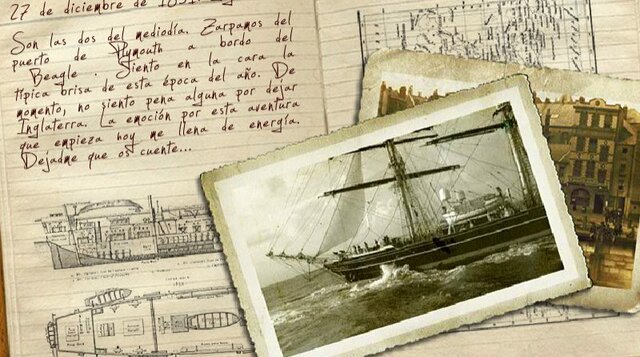 27 de diciembre de 1831.
Son las dos del mediodía. Zarpamos del
puerto de Plymouth a bordo del
Beagle. Siento en la cara la
típica brisa de esta época del año. De
momento, no siento pena alguna por dejar
Inglaterra. La emoción por esta aventura
que empieza hoy me llena de energía.
Dejadme que os cuente...